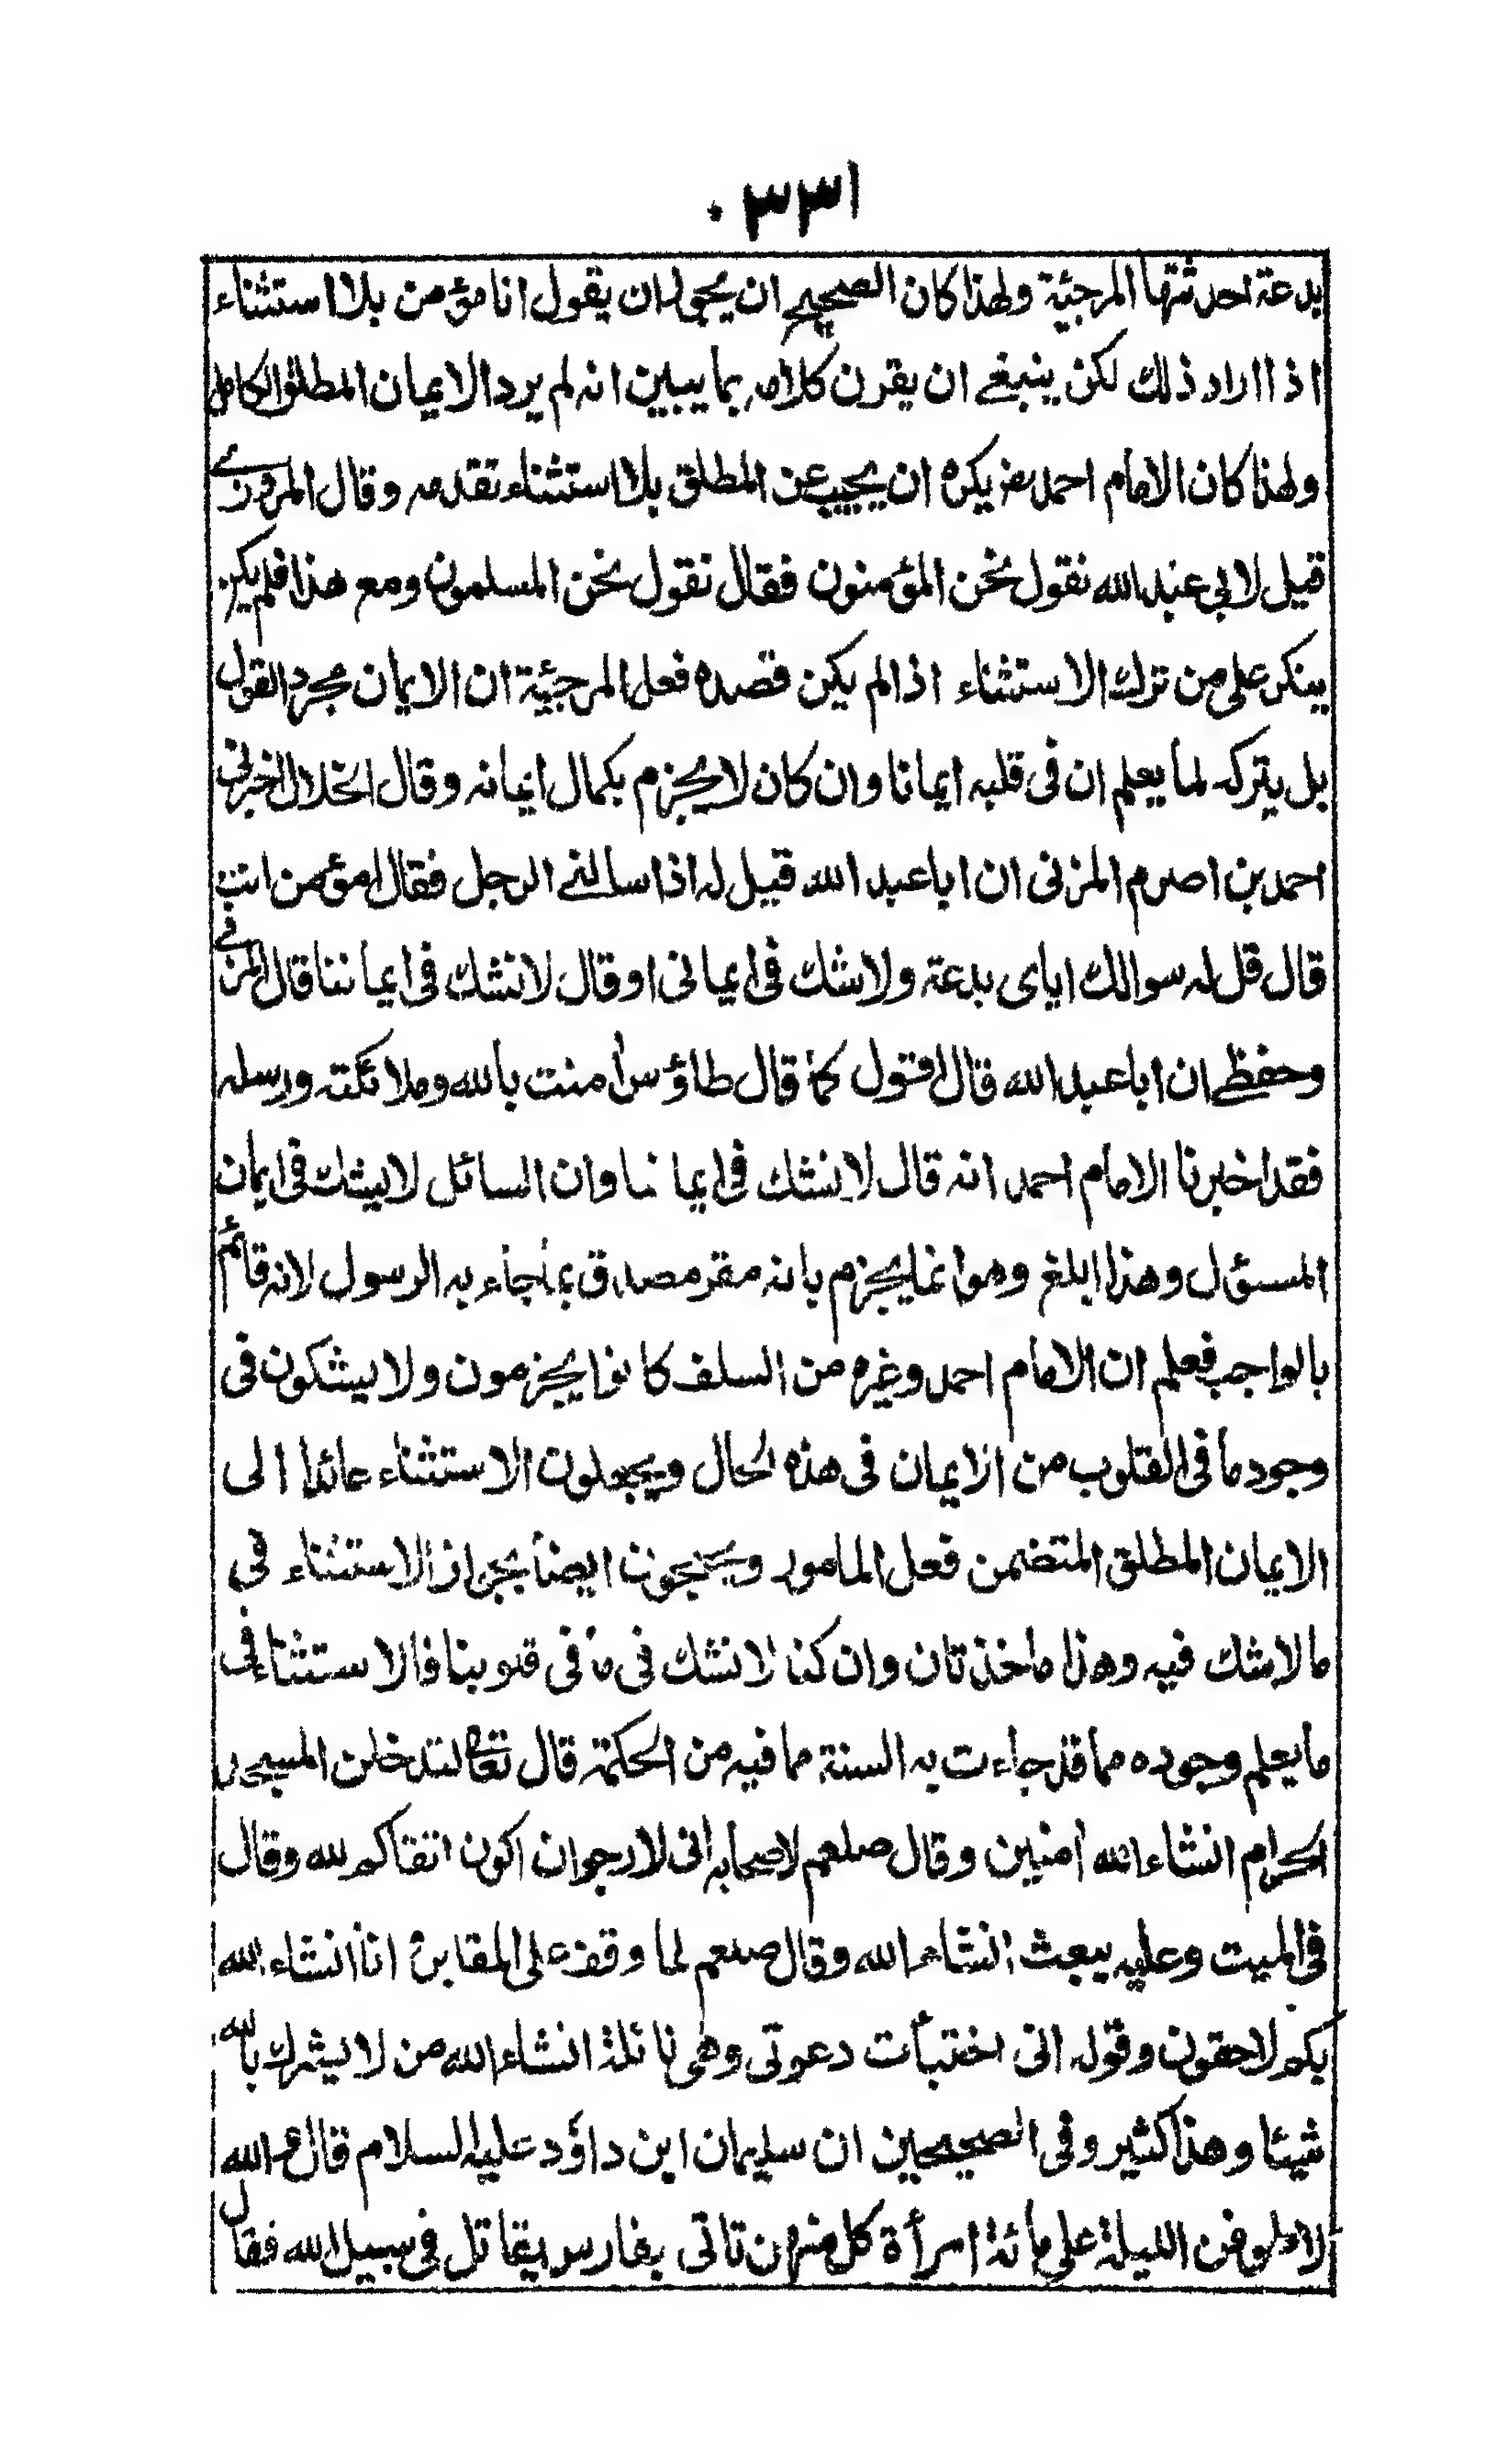 ٣٣١
بدعة احدثتها المرجئة ولهذا كان الصحيح ان يجوز ان يقول انا مؤمن بلا استثناء
اذا اراد ذلك لكن ينبغي ان يقرن كلامه بما يبين انه لم يرد الايمان المطلق الكامل
ولهذا كان الامام احمد رض يكره ان يجيب عن المطلق بلا استثناء تقدمه وقال المروزي
قيل لابي عبد الله نقول نحن المؤمنون فقال نقول نحن المسلمون ومع هذا فلم يكن
ينكر على من ترك الاستثناء اذا لم يكن قصده فعل المرجئة ان الايمان مجرد القول
بل يتركه لما يعلم ان فى قلبه ايمانا وان كان لا يجزم بكمال ايمانه وقال الخلال اخبرنى
احمد بن اصرم المزنى ان ابا عبد الله قيل له اذا سالنے الرجل فقال امؤمن انت
قال قل له سوالك اياى بدعة ولا شك فى ايمانى او قال لا نشك فى ايماننا قال المزني
وحفظے ان ابا عبد الله قال اقول كما قال طاؤس اٰمنت بالله وملائكته ورسله
فقد اخبرنا الامام احمد انه قال لا نشك فى ايماننا وان السائل لا يشك فى ايمان
المسؤل وهذا ابلغ وهو انما يجزم بانه مقر مصدق بما جاء به الرسول لا انه قائم
بالواجب فعلم ان الامام احمد وغيره من السلف كانوا يجزمون ولا يشكون فى
وجود ما فى القلوب من الايمان فى هذه الحال ويجعلون الاستثناء عائدا الى
الايمان المطلق المتضمن فعل المامور ويحتجون ايضا بجواز الاستثناء في
ما لا شك فيه وهذا ماخذ ثان وان كنا لا نشك فى ما فى قلوبنا فالاستثناء فى
ما يعلم وجوده مما قد جاءت به السنة مما فيه من الحكمة قال تعالى لتدخلن المسجد
الحرام انشاء الله اٰمنين وقال صلعم لاصحابه انى لارجو ان اكون اتقاكم لله وقال
فى الميت وعليه يبعث انشاء الله وقال صلعم لما وقف على المقابر انا انشاء الله
بكم لاحقون وقوله انى اختبأت دعوتى وهى نائلة انشاء الله من لا يشرك بالله
شيئا وهذا كثير وفى الصحيحين ان سليمان ابن داؤد عليه السلام قال والله
لاطوفن الليلة على مائة امرأة كل منهن تاتى بفارس يقاتل فى سبيل الله فقال